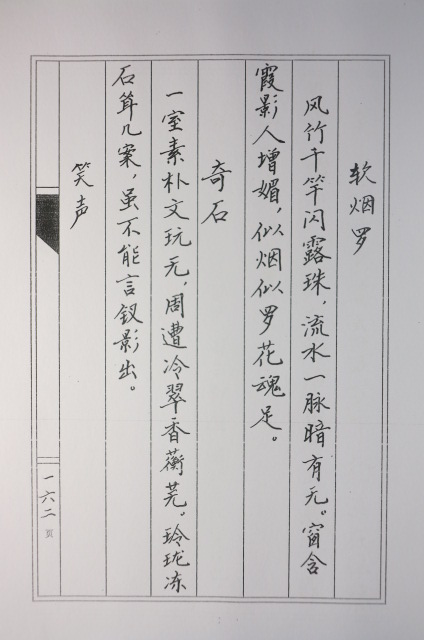 软烟罗
风竹千竿闪露珠，流水一脉暗有无。窗含
霞影人增媚，似烟似罗花魂足。
奇石
一室素朴文玩无，周遭冷翠香蘅芜。玲珑冻
石耸几案，虽不能言钗影出。
笑声
一六二页